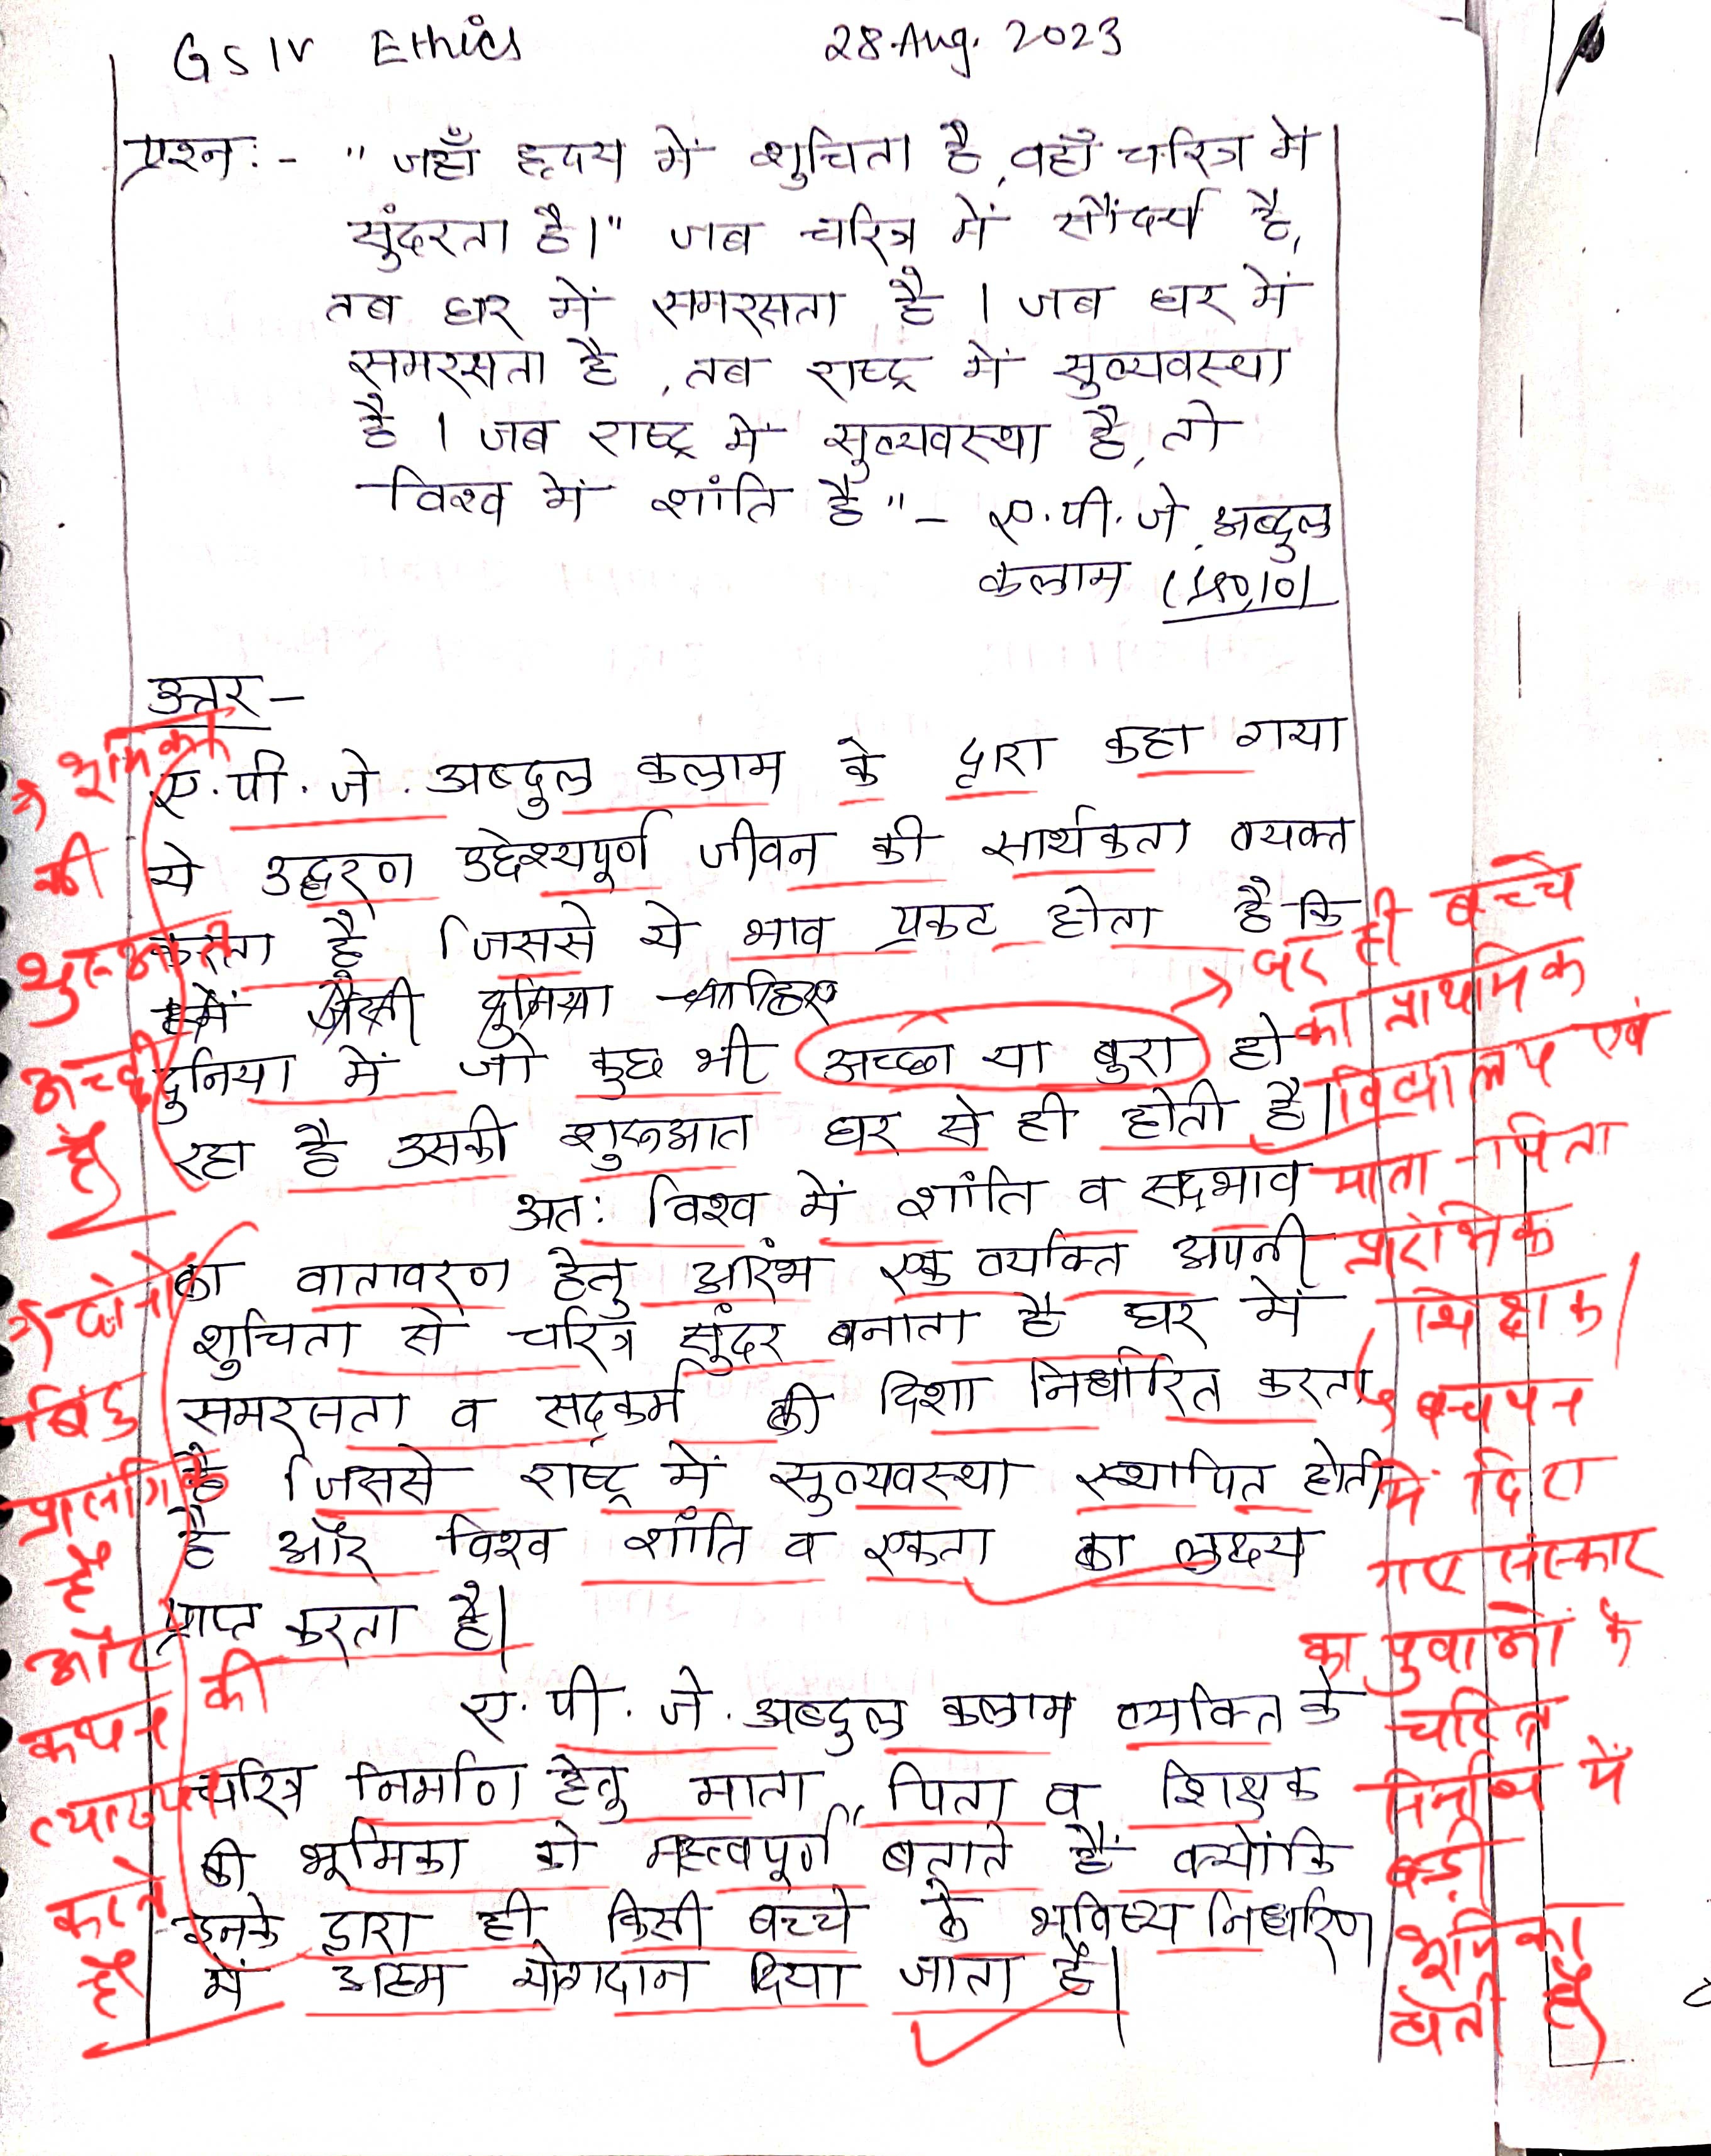 GS IV Ethics 28 Aug. 2023
प्रश्न:- "जहाँ हृदय में शुचिता है, वहाँ चरित्र में
सुंदरता है।" जब चरित्र में सौंदर्य है,
तब घर में समरसता है । जब घर में
समरसता है, तब राष्ट्र में सुव्यवस्था
है । जब राष्ट्र में सुव्यवस्था है, तो
विश्व में शांति है" – ए.पी.जे. अब्दुल
कलाम (150,10)
उत्तर –
ए.पी.जे. अब्दुल कलाम के द्वारा कहा गया
ये उद्धरण उद्देश्यपूर्ण जीवन की सार्थकता व्यक्त
करता है जिससे ये भाव प्रकट होता है कि
दुनिया में जो कुछ भी अच्छा या बुरा हो
रहा है उसकी शुरूआत घर से ही होती है।
अत: विश्व में शांति व सद्भाव
का वातावरण हेतु आरंभ एक व्यक्ति अपनी
शुचिता से चरित्र सुंदर बनाता है घर में
समरसता व सद्कर्म की दिशा निर्धारित करता
है जिससे राष्ट्र में सुव्यवस्था स्थापित होती
है और विश्व शांति व एकता का लक्ष्य
प्राप्त करता है।
ए.पी.जे. अब्दुल कलाम व्यक्ति के
चरित्र निर्माण हेतु माता, पिता व शिक्षक
की भूमिका को महत्वपूर्ण बताते हैं क्योंकि
इनके द्वारा ही किसी बच्चे के भविष्य निर्धारण
में अहम योगदान दिया जाता है।
भूमिका
की
शुरूआत
अच्छी
है
दोनों
बिंदु
प्रासंगिक
है
और
कथन की
व्याख्या
करते
हैं
घर ही बच्चे
का प्राथमिक
विद्यालय एवं
माता-पिता
प्रारंभिक
शिक्षक।
बचपन
में दिए
गए संस्कार
का युवाओं के
चरित्र
निर्माण में
बड़ी
भूमिका
होती है